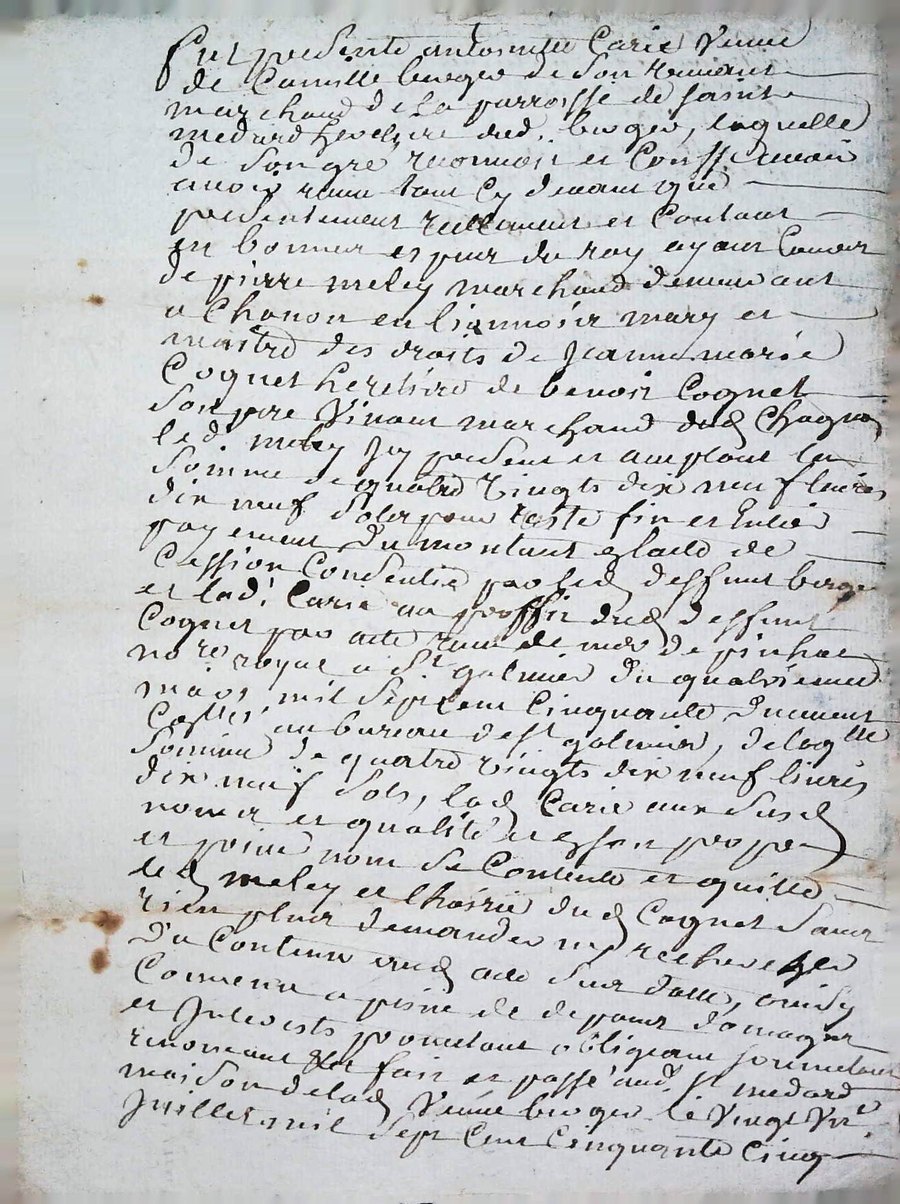 fut presente antoinette Carie Veuve
de Camille berger de son vivant
marchand de La parroisse de saint
medard heretiere dud. berger, laquelle
de son gré reconnoit et Confesse avoir
avoir receu tant cy devant que
presentement reellement et Contant
en bonnes especes du roy ayant Cours
de pierre meley marchand demeurant
a Chanon en lionnois mary et
maitre des droits de Jeanne marie
Cognet heretiere de benoit Cognet
son pere Vivant marchand dud Chagnon
led meley Icy present et acceptant la
somme de quatre vingts dix neuf livres
dix neuf sols pour reste fin et Entier
payement du montant en lacte de
Cession Consentie par led deffunt berger
et lad. Carie au proffit dud deffunt
Cognet par acte receu de me de pinhac
nore royal a St galmier du quatrieme
mars mil sept cent Cinquante duement
Collé au bureau de St galmier, de laqlle
somme de quatre vingts dix neuf livres
dix neuf sols, lad Carie aux susd
noms et qualité et en son propre
et privé nom se Contente et quitte
led meley et lhoirie dud Cognet sans
rien plus demander ny rechercher
du Contenu aud acte sus datte, ainsy
Convenu a peine de depens domages
et Interests promettant obligeant soumettant
renonceant fait et passé aud St medard
maison de lad Veuve berger le Vingt
Juillet mil sept Cent Cinquante Cinq